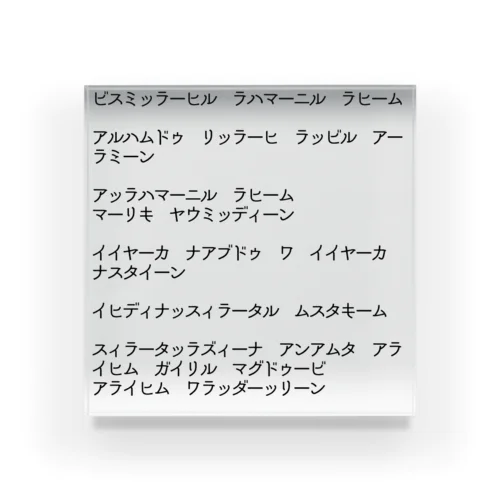 ビスミッラーヒル　ラハマーニル　ラヒーム
アルハムドゥ　リッラーヒ　ラッビル　アー
ラミーン
アッラハマーニル　ラヒーム
マーリキ　ヤウミッディーン
イイヤーカ　ナアブドゥ　ワ　イイヤーカ
ナスタイーン
イヒディナッスィラータル　ムスタキーム
スィラータッラズィーナ　アンアムタ　アラ
イヒム　ガイリル　マグドゥービ
アライヒム　ワラッダーッリーン